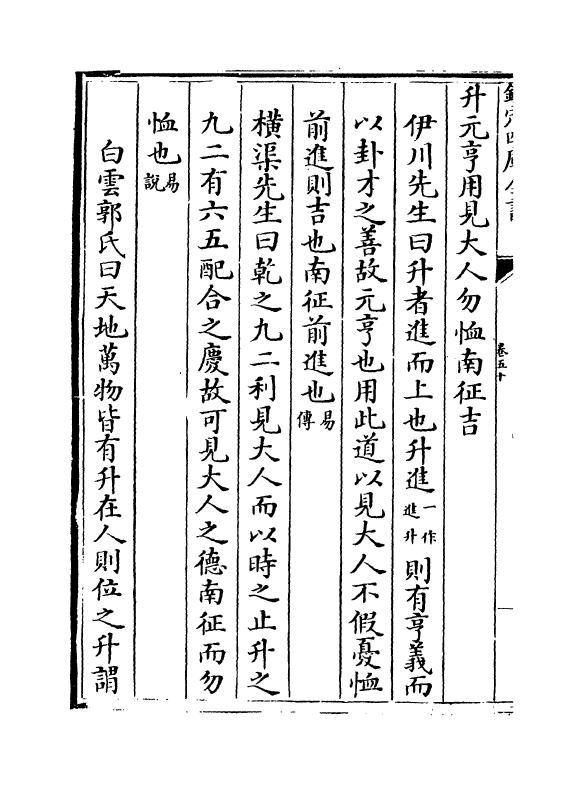 欽定四庫全書
卷五十
升元亨用見大人勿恤南征吉
伊川先生曰升者進而上也升進一作進升則有亨義而
以卦才之善故元亨也用此道以見大人不假憂恤
前進則吉也南征前進也易傳
橫渠先生曰乾之九二利見大人而以時之止升之
九二有六五配合之慶故可見大人之德南征而勿
恤也易說
白雲郭氏曰天地萬物皆有升在人則位之升謂